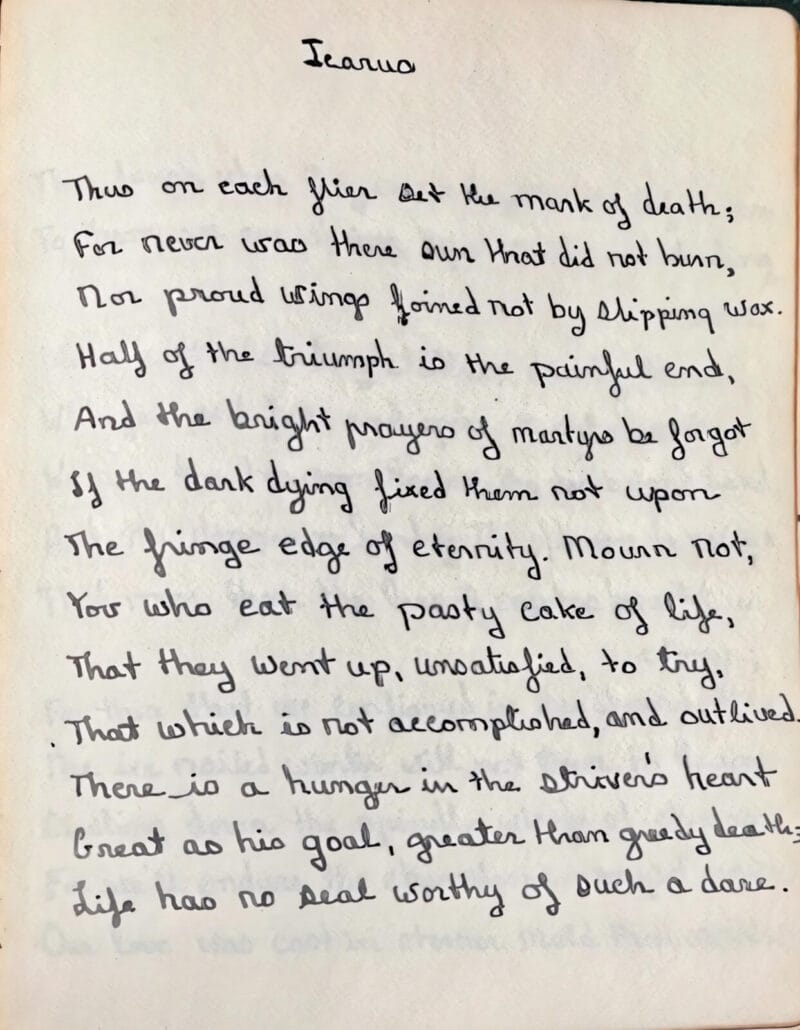 Icarus
Thus on each flier set the mark of death;
For never was there sun that did not burn,
Nor proud wings joined not by slipping wax.
Half of the triumph is the painful end,
And the bright prayers of martyrs be forgot
If the dark dying fixed them not upon
The fringe edge of eternity. Mourn not,
You who eat the pasty cake of life,
That they went up, unsatisfied, to try,
That which is not accomplished, and outlived.
There is a hunger in the striver's heart
Great as his goal, greater than greedy death;
Life has no seal worthy of such a dare.